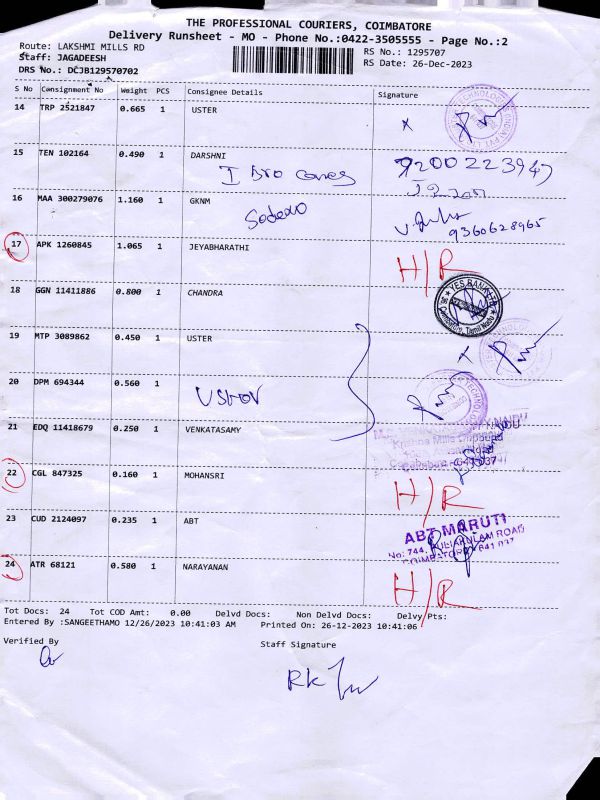 THE PROFESSIONAL COURIERS, COIMBATORE
Delivery Runsheet - MO - Phone No.:0422-3505555 - Page No.:2
Route: LAKSHMI MILLS RD
RS No.: 1295707
Staff: JAGADEESH
RS Date: 26-Dec-2023
DRS No.: DCJB129570702
S No Consignment No Weight PCS Consignee Details Signature
14 TRP 2521847 0.665 1 USTER
15 TEN 102164 0.490 1 DARSHNI 9200223947
16 MAA 300279076 1.160 1 GKNM
Sodexo 9360628965
17 APK 1260845 1.065 1 JEYABHARATHI H/R
18 GGN 11411886 0.800 1 CHANDRA
YES BANK LTD
19 MTP 3089862 0.450 1 USTER
20 DPM 694344 0.560 1
Uster
21 EDQ 11418679 0.250 1 VENKATASAMY
22 CGL 847325 0.160 1 MOHANSRI H/R
23 CUD 2124097 0.235 1 ABT
ABT MARUTI
No: 744, PULIAKULAM ROAD
24 ATR 68121 0.580 1 NARAYANAN H/R
Tot Docs: 24 Tot COD Amt: 0.00 Delvd Docs: Non Delvd Docs: Delvy Pts:
Entered By :SANGEETHAMO 12/26/2023 10:41:03 AM Printed On: 26-12-2023 10:41:06
Verified By
Staff Signature